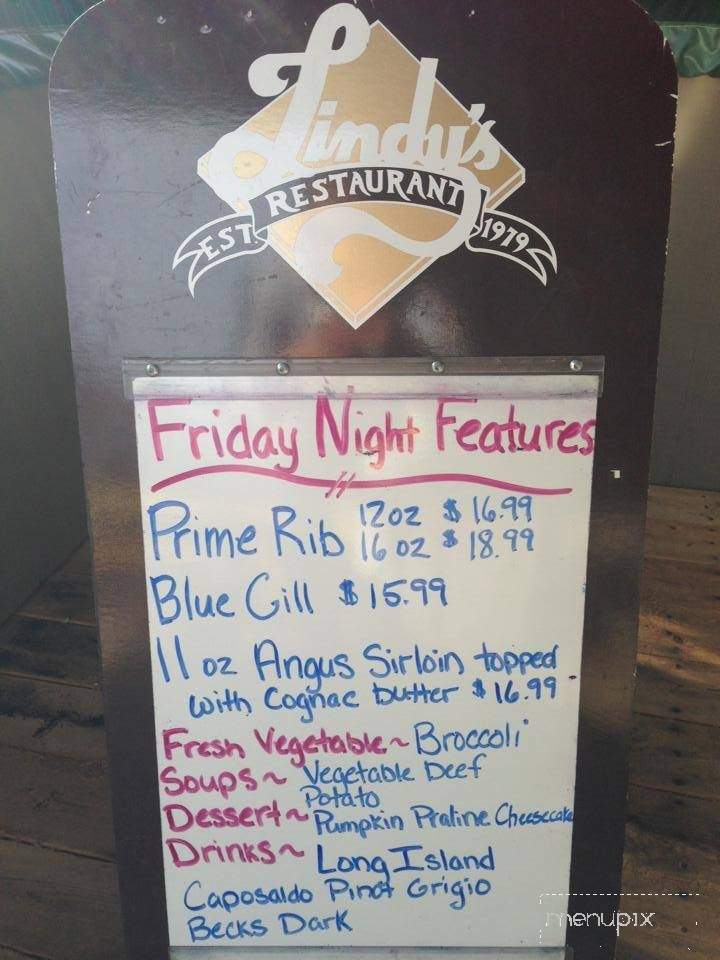 Lindy's
RESTAURANT
EST. 1979
Friday Night Features
Prime Rib 12oz $16.99
16oz $18.99
Blue Gill $15.99
11oz Angus Sirloin topped
with Cognac butter $16.99
Fresh Vegetable~Broccoli
Soups~ Vegetable Beef
Potato
Dessert~ Pumpkin Praline Cheesecake
Drinks~ Long Island
Caposaldo Pinot Grigio
Becks Dark
menupix